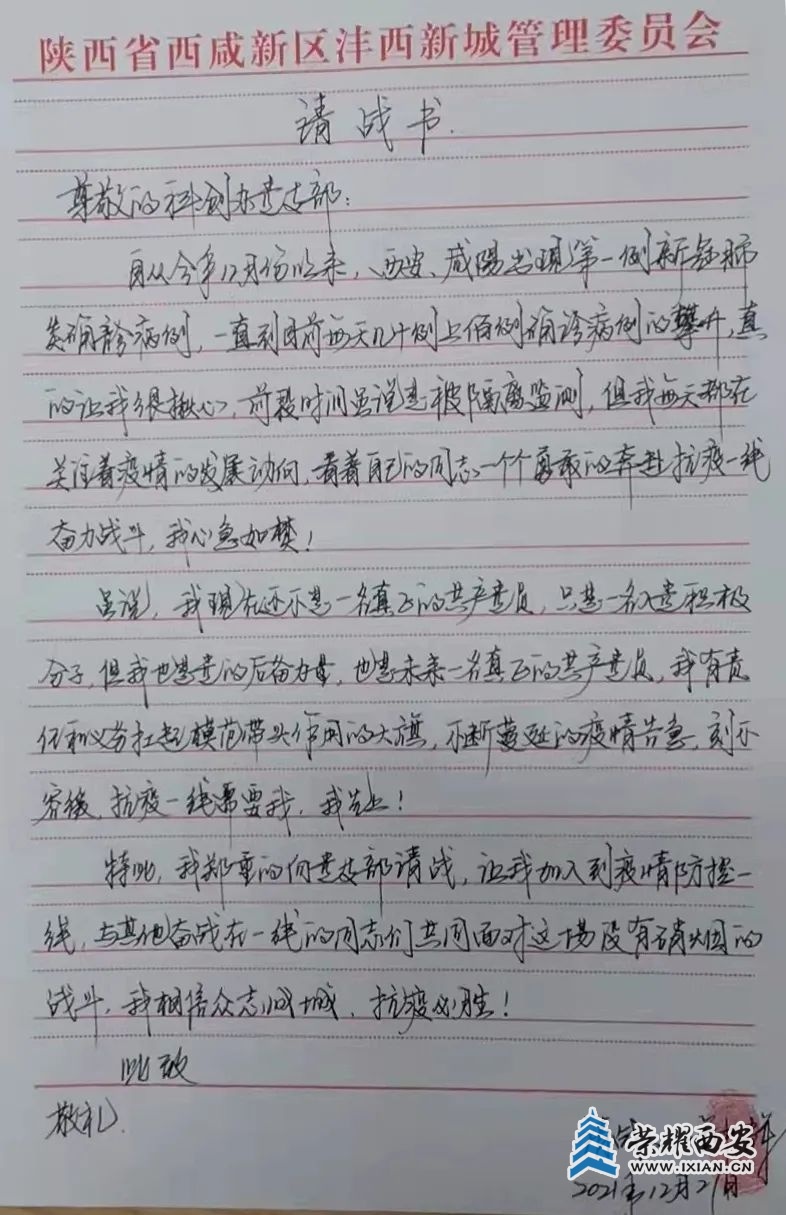 陕西省西咸新区沣西新城管理委员会
请战书.
尊敬的科创办党支部:
自从今年12月份以来,西安、咸阳出现第一例新冠肺
炎确诊病例,一直到目前每天几十例上佰例确诊病例的攀升,真
的让我很揪心,前段时间虽说是被隔离监测,但我每天都在
关注着疫情的发展动向,看着自己的同志一个个勇敢的奔赴抗疫一线
奋力战斗,我心急如焚!
虽说,我现在还不是一名真正的共产党员,只是一名入党积极
分子,但我也是党的后备力量,也是未来一名真正的共产党员,我有责
任和义务扛起模范带头作用的大旗,不断蔓延的疫情告急,刻不
容缓,抗疫一线需要我,我先上!
特此,我郑重的向党支部请战,让我加入到疫情防控一
线,与其他奋战在一线的同志们共同面对这场没有硝烟的
战斗,我相信众志成城,抗疫必胜!
此致
敬礼.
荣耀西安
WWW.IXIAN.CN
2021年12月21日